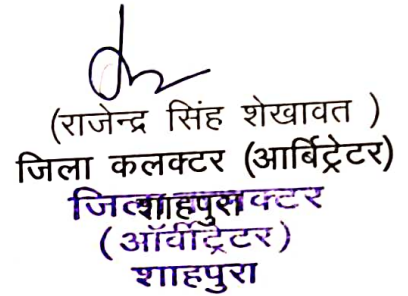 (राजेन्द्र सिंह शेखावत )
जिला कलक्टर (आर्बिट्रेटर)
शाहपुरा
जिला कलक्टर
(ऑर्वीट्रेटर)
शाहपुरा